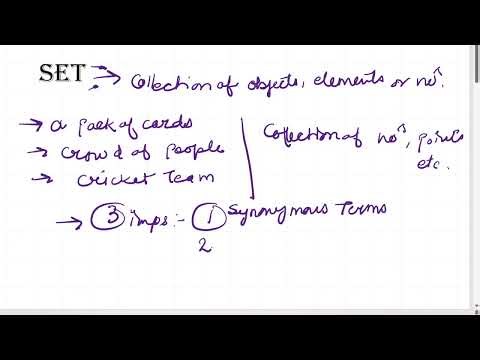 SET :→ Collection of objects, elements or noˢ.
→ a pack of cards
→ crowd of people
→ cricket team
Collection of noˢ, points
etc.
→ ③ imps:- ① Synonymous Terms
2